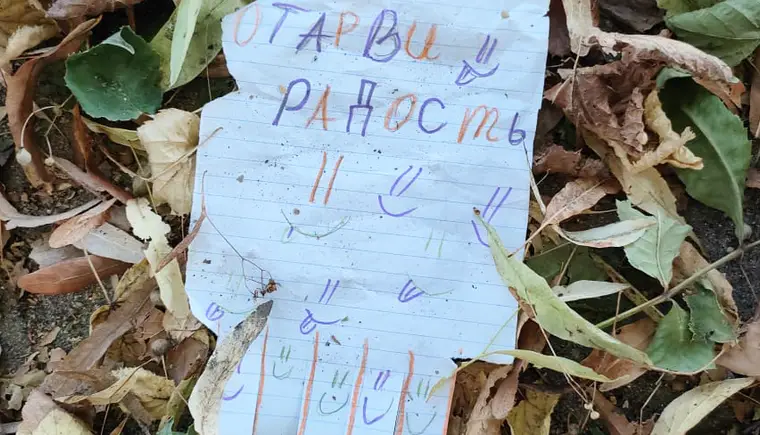 ОТАРВИ
РАДОСТЬ